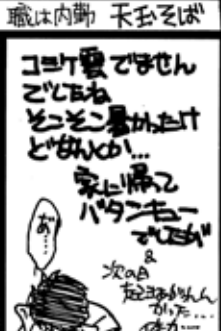 職は内勤 天玉そば
コミケ雪でません
でしたね
そこそこ暑かったけ
どなんとか…
家に帰って
バタンキュー
でしたが
あ…
&
次の日
起きあがれん
かった…